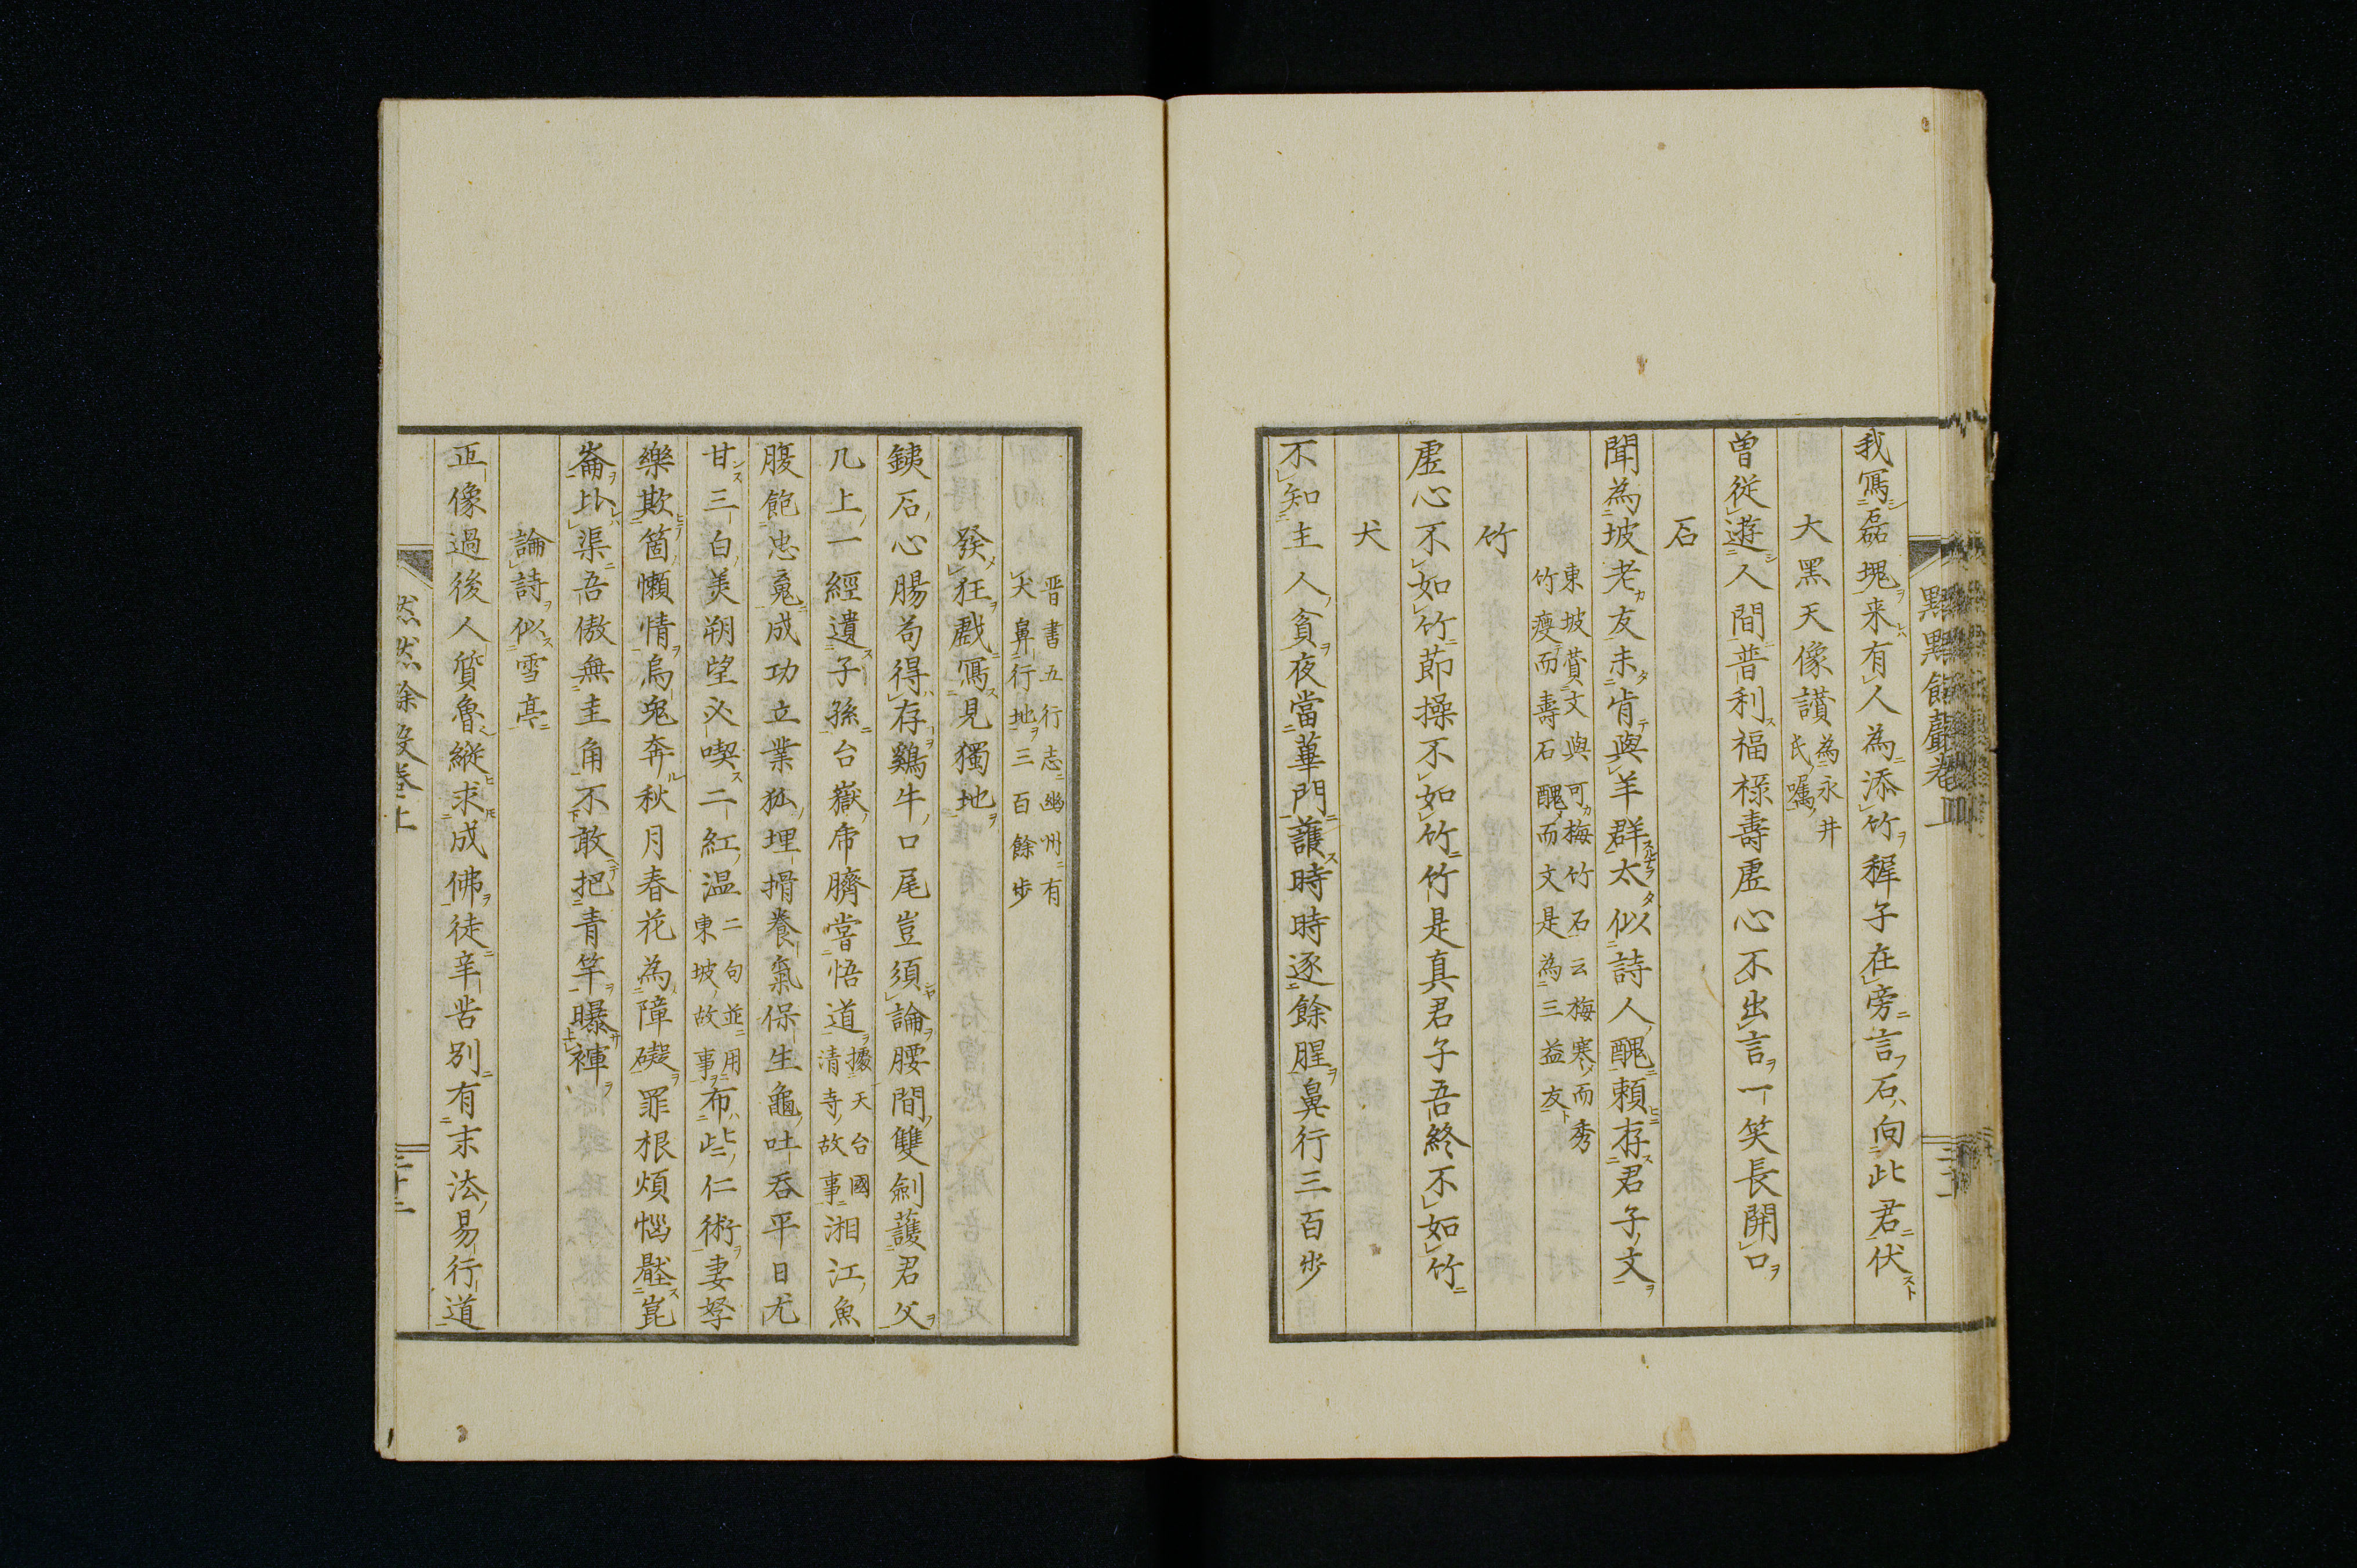 我寫磊塊来有人為添竹稺子在旁言石向此君伏
大黑天像讃為永井氏囑
曽從遊人間普利福禄壽虚心不出言一笑長開口
石
聞為坡老友未肯與羊群太似詩人醜頼存君子文
東坡賛文與可梅竹石云梅寒而秀
竹瘦而壽石醜而文是為三益友
竹
虚心不如竹節操不如竹竹是真君子吾終不如竹
犬
不知主人貧夜當蓽門護時時逐餘腥鼻行三百步
晋書五行志幽州有
犬鼻行地三百餘步
發狂戲寫見獨地
銕石心腸苟得存鷄牛口尾豈須論腰間雙劍護君父
几上一經遺子孫台嶽帝臍嘗悟道據天台國清寺故事湘江魚
腹飽忠寃成功立業狐埋搰養氣保生龜吐呑平日尤
甘三白美朔望必喫二紅温二句並用東坡故事布些仁術妻孥
樂欺箇懶情烏兔奔秋月春花為障礙罪根煩惱鼟崑
崙比渠吾傲無圭角不敢把青竿曝褌
論詩似雪亭
正像過後人質魯縦求成佛徒辛苦別有末法易行道